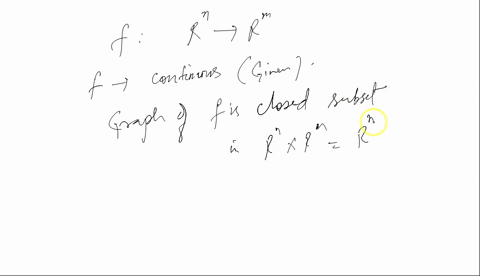 f : R^n → R^m
f → continuous (Given).
Graph of f is closed subset
in R^n × R^n = R^n